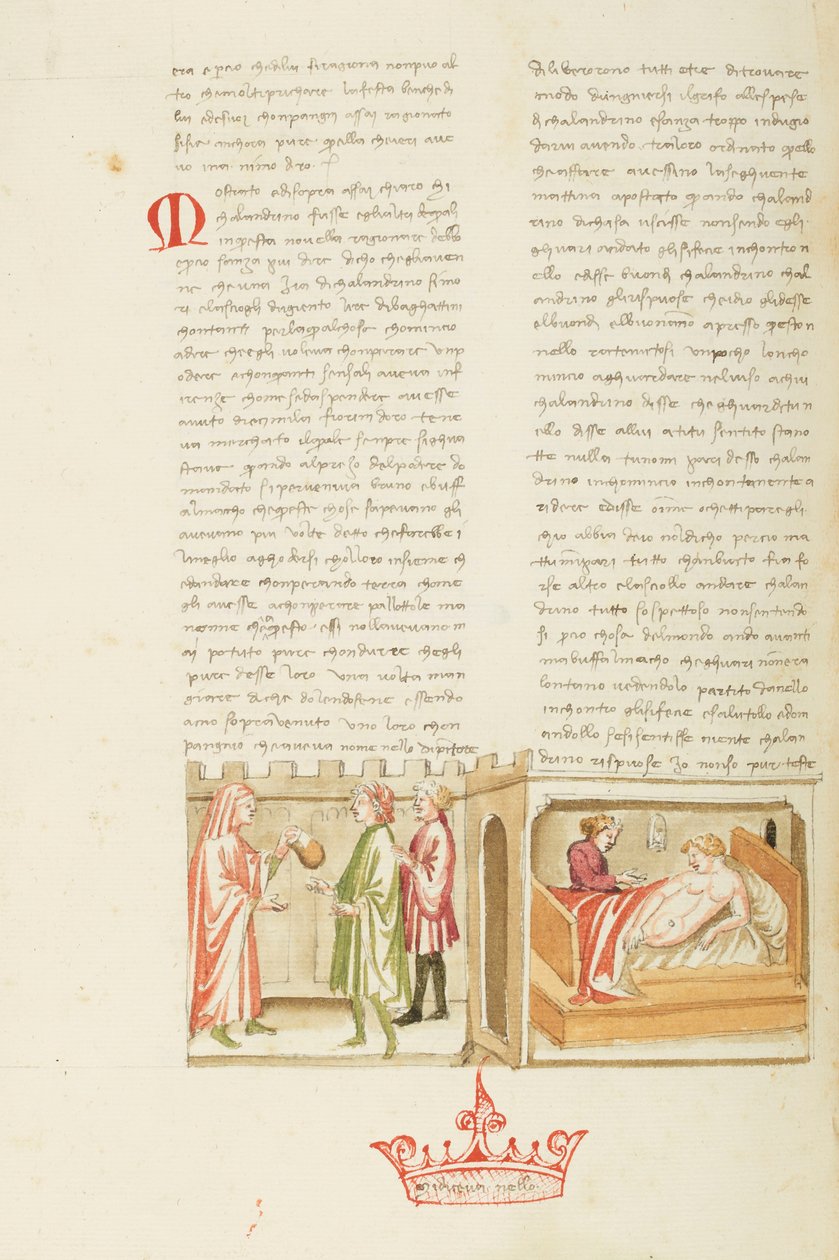 era e percio che di lui si ragiona non puo al
tro che moltiprichare la festa benche di
lui e de suoi chonpangni assai ragionato
si sia anchora pure quella che ieri ave
vo in a nimo diro
Mostrato e di sopra assai chiaro chi
chalandrino fusse e gli altri de quali
in questa novella ragionare debbo
e percio sanza piu dire dicho che gli aven
ne che una zia di chalandrino si mo
ri e lascio gli dugiento lire di baghattini
chontanti per la qual chosa chomincio
a dire che egli voleva chonperare un p
odere e chon quanti sensali aveva in f
irenze chome se da spendere avesse
avuto diecimila fiorini doro tene
va merchato il quale senpre si ghua
stava quando al prezo del podere do
mandato si perveniva bruno e buff
almacho che queste chose sapevano gli
avevano piu volte detto che farebbe i
l meglio a ghodersi cholloro insieme ch
e andare chonperando terra chome
gli avesse a chonperare pallottole ma
nonne che a questo essi nollavevano m
ai potuto pure chondurre chegli
pure desse loro una volta man
giare di che dolendosene essendo
a cio sopravenuto uno loro chon
pangnio che aveva nome nello dipintore
diliverorono tutti e tre di trovare
modo dungniersi il grifo alle spese
di chalandrino e sanza troppo indugio
darvi avendo tra loro ordinato quello
che affare avessino la seghuente
mattina apostato quando chaland
rino di chasa uscisse nonsendo egli
ghuari andato gli si fecie inchontro n
ello e disse buondi chalandrino chal
andrino gli rispuose che idio gli desse
el buondi el buonanno apresso questo n
nello rattenutosi un pocho lo incho
mincio a ghuardare nel viso a chui
chalandrino disse che ghuardi tu n
ello disse allui a ti tu sentito stano
tte nulla tu nomi pari desso chalan
drino inchominciò inchontanente a
ridere e disse oime che ti pare egli
chio abbia deio nol dicho percio ma
ttu mi pari tutto chanbiato fia fo
rse altro e lasciollo andare chalan
drino tutto sospettoso non sentendo
si percio chosa del mondo ando avanti
ma buffalmacho che ghuari nonnera
lontano vedendolo partito da nello
inchontro gli si fecie e salutollo e dom
andollo se si sentisse niente chalan
drino rispuose io non so pur teste
mi diceva nello